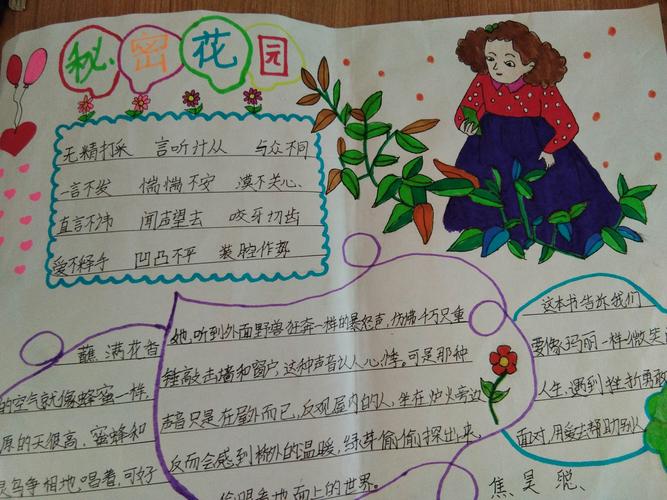 秘密花园
无精打采 言听计从 与众不同
一言不发 惴惴不安 漠不关心
直言不讳 闻声望去 咬牙切齿
爱不释手 凹凸不平 装腔作势
她,听到外面野兽狂奔一样的暴怒声,仿佛千万只重
锤高击墙和窗户,这种声音让人心悸。可是那种
声音只是在屋外而已,反观屋内的人,坐在炉火旁边
反而会感到格外的温暖,绿芽偷偷探出来,
偷眼看地面上的世界。
蘸满花香
的空气就像蜂蜜一样,
原的天很高,蜜蜂和
鸟争相地唱着,可好
这本书告诉我们
要像玛丽一样微笑
人生,遇到挫折勇敢
面对,用爱去帮助别人
焦昊聪